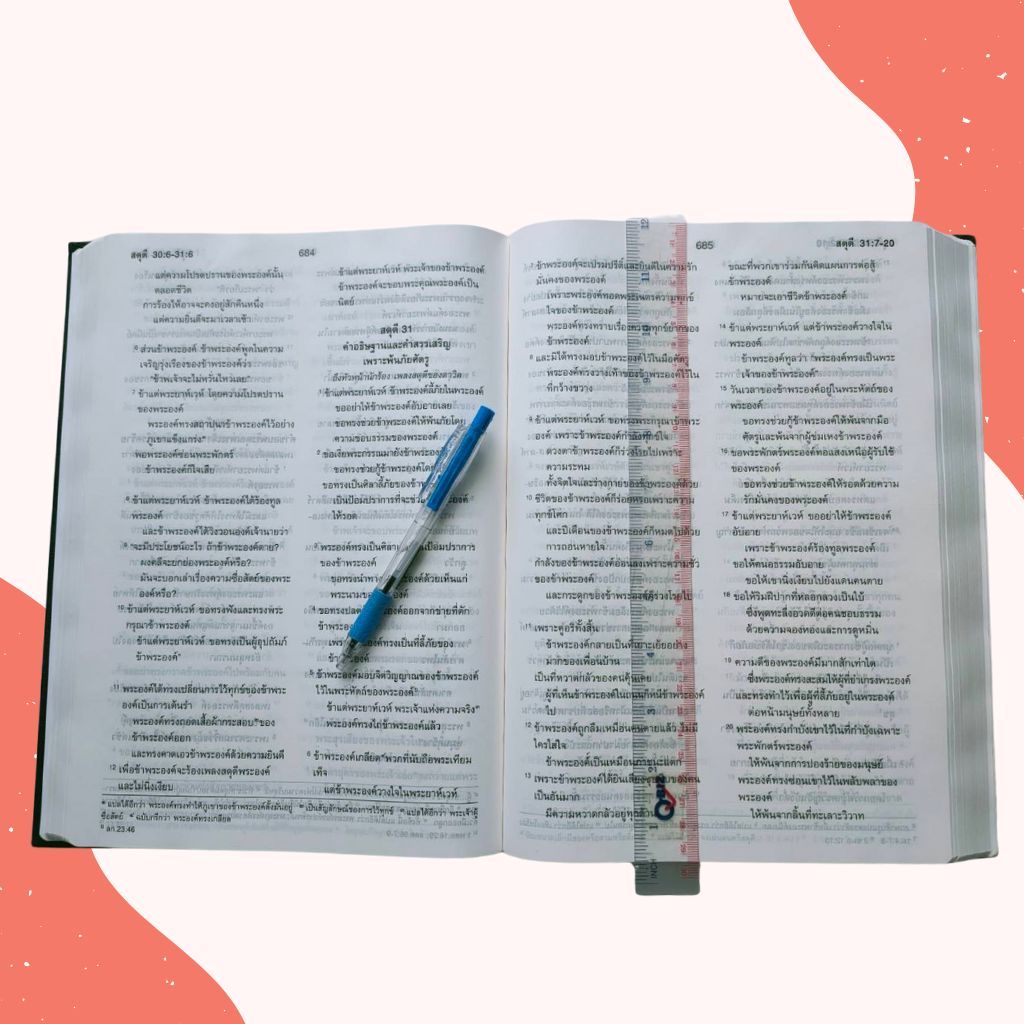 สดุดี 30:6-31:6
684
แต่ความโปรดปรานของพระองค์นั้น
ตลอดชีวิต
การร้องไห้อาจจะคงอยู่สักคืนหนึ่ง
แต่ความยินดีจะมาเวลาเช้า
6 ส่วนข้าพระองค์ ข้าพระองค์พูดในความ
เจริญรุ่งเรืองของข้าพระองค์ว่า
"ข้าพเจ้าจะไม่หวั่นไหวเลย"
7 ข้าแต่พระยาห์เวห์ โดยความโปรดปราน
ของพระองค์
พระองค์ทรงสถาปนาข้าพระองค์ไว้อย่าง
ภูเขาแข็งแกร่ง
พอพระองค์ซ่อนพระพักตร์
ข้าพระองค์ก็ใจเสีย
8 ข้าแต่พระยาห์เวห์ ข้าพระองค์ได้ร้องทูล
พระองค์
และข้าพระองค์ได้วิงวอนองค์เจ้านายว่า
9 "จะมีประโยชน์อะไร ถ้าข้าพระองค์ตาย?
ผงคลีจะยกย่องพระองค์หรือ?
มันจะบอกเล่าเรื่องความซื่อสัตย์ของพระ
องค์หรือ?
10 ข้าแต่พระยาห์เวห์ ขอทรงฟังและทรงพระ
กรุณาข้าพระองค์
ข้าแต่พระยาห์เวห์ ขอทรงเป็นผู้อุปถัมภ์
ข้าพระองค์"
11 พระองค์ได้ทรงเปลี่ยนการไว้ทุกข์ของข้าพระ
องค์เป็นการเต้นรำ
พระองค์ทรงถอดเสื้อผ้ากระสอบของ
ข้าพระองค์ออก
และทรงคาดเอวข้าพระองค์ด้วยความยินดี
12 เพื่อข้าพระองค์จะร้องเพลงสดุดีพระองค์
และไม่นิ่งเงียบ
ข้าแต่พระยาห์เวห์ พระเจ้าของข้าพระองค์
ข้าพระองค์จะขอบพระคุณพระองค์เป็น
นิตย์
สดุดี 31
คำอธิษฐานและคำสรรเสริญ
เพราะพ้นภัยศัตรู
ถึงหัวหน้านักร้อง เพลงสดุดีของดาวิด
1 ข้าแต่พระยาห์เวห์ ข้าพระองค์ลี้ภัยในพระองค์
ขออย่าให้ข้าพระองค์อับอายเลย
ขอทรงช่วยข้าพระองค์ให้พ้นภัยโดย
ความชอบธรรมของพระองค์
2 ขอเงี่ยพระกรรณมายังข้าพระองค์
ขอทรงช่วยกู้ข้าพระองค์โดย
ขอทรงเป็นศิลาลี้ภัยของข้า
เป็นป้อมปราการที่จะช่วย
ให้รอด
3 พระองค์ทรงเป็นศิลา ป้อมปราการ
ของข้าพระองค์
ขอทรงนำทาง องค์ด้วยเห็นแก่
พระนามของ
4 ขอทรงปลด องค์ออกจากข่ายที่ดัก
ข้าพระองค์
เพราะพระองค์ทรงเป็นที่ลี้ภัยของ
ข้าพระองค์
5 ข้าพระองค์มอบจิตวิญญาณของข้าพระองค์
ไว้ในพระหัตถ์ของพระองค์
ข้าแต่พระยาห์เวห์ พระเจ้าแห่งความจริง
พระองค์ทรงไถ่ข้าพระองค์แล้ว
6 ข้าพระองค์เกลียดพวกที่นับถือพระเทียม
เท็จ
แต่ข้าพระองค์วางใจในพระยาห์เวห์
แปลได้อีกว่า พระองค์ทรงทำให้ภูเขาของข้าพระองค์ตั้งมั่นอยู่ เป็นสัญลักษณ์ของการไว้ทุกข์ แปลได้อีกว่า พระเจ้าผู้
ซื่อสัตย์ ฉบับกรีกว่า พระองค์ทรงเกลียด
ลก.23:46
685
สดุดี 31:7-20
7 ข้าพระองค์จะเปรมปรีดิ์และยินดีในความรัก
มั่นคงของพระองค์
เพราะพระองค์ทอดพระเนตรความทุกข์
ใจของข้าพระองค์
พระองค์ทรงทราบเรื่องความทุกข์ยากของ
ข้าพระองค์
8 และมิได้ทรงมอบข้าพระองค์ไว้ในมือศัตรู
พระองค์ทรงวางเท้าของข้าพระองค์ไว้ใน
ที่กว้างขวาง
9 ข้าแต่พระยาห์เวห์ ขอทรงพระกรุณาข้าพระ
องค์ เพราะข้าพระองค์กำลังทุกข์ใจ
ดวงตาข้าพระองค์ก็ร่วงโรยไปเพราะ
ความระทม
ทั้งจิตใจและร่างกายของข้าพระองค์ด้วย
10 ชีวิตของข้าพระองค์ก็ร่อยหรอเพราะความ
ทุกข์โศก
และปีเดือนของข้าพระองค์ก็หมดไปด้วย
การถอนหายใจ
กำลังของข้าพระองค์อ่อนลงเพราะความชั่ว
ของข้าพระองค์
และกระดูกของข้าพระองค์ก็ร่วงโรยไป
11 เพราะคู่อริทั้งสิ้น
ข้าพระองค์กลายเป็นที่เยาะเย้ยอย่าง
มากของเพื่อนบ้าน
เป็นที่หวาดกลัวของคนคุ้นเคย
ผู้ที่เห็นข้าพระองค์ในถนนก็หนีข้าพระองค์
ไป
12 ข้าพระองค์ถูกลืมเหมือนคนตายแล้ว ไม่มี
ใครใส่ใจ
ข้าพระองค์เป็นเหมือนภาชนะแตก
13 เพราะข้าพระองค์ได้ยินเสียง ของคน
เป็นอันมาก
มีความหวาดกลัวอยู่ทุกด้าน
ขณะที่พวกเขาร่วมกันคิดแผนการต่อสู้
ข้าพระองค์
หมายจะเอาชีวิตข้าพระองค์
14 ข้าแต่พระยาห์เวห์ แต่ข้าพระองค์วางใจใน
พระองค์
ข้าพระองค์ทูลว่า "พระองค์ทรงเป็นพระ
เจ้าของข้าพระองค์"
15 วันเวลาของข้าพระองค์อยู่ในพระหัตถ์ของ
พระองค์
ขอทรงช่วยกู้ข้าพระองค์ให้พ้นจากมือ
ศัตรูและพ้นจากผู้ข่มเหงข้าพระองค์
16 ขอพระพักตร์พระองค์ทอแสงเหนือผู้รับใช้
ของพระองค์
ขอทรงช่วยข้าพระองค์ให้รอดด้วยความ
รักมั่นคงของพระองค์
17 ข้าแต่พระยาห์เวห์ ขออย่าให้ข้าพระองค์
อับอาย
เพราะข้าพระองค์ร้องทูลพระองค์
ขอให้คนอธรรมอับอาย
ขอให้เขานิ่งเงียบไปยังแดนคนตาย
18 ขอให้ริมฝีปากที่หลอกลวงเป็นใบ้
ซึ่งพูดทะลึ่งอวดดีต่อคนชอบธรรม
ด้วยความจองหองและการดูหมิ่น
19 ความดีของพระองค์มีมากสักเท่าใด
ซึ่งพระองค์ทรงสะสมให้ผู้ที่ยำเกรงพระองค์
และทรงทำไว้เพื่อผู้ที่ลี้ภัยอยู่ในพระองค์
ต่อหน้ามนุษย์ทั้งหลาย
20 พระองค์ทรงกำบังเขาไว้ในที่กำบังเฉพาะ
พระพักตร์พระองค์
ให้พ้นจากการปองร้ายของมนุษย์
พระองค์ทรงซ่อนเขาไว้ในพลับพลาของ
พระองค์
ให้พ้นจากลิ้นที่ทะเลาะวิวาท
INCH